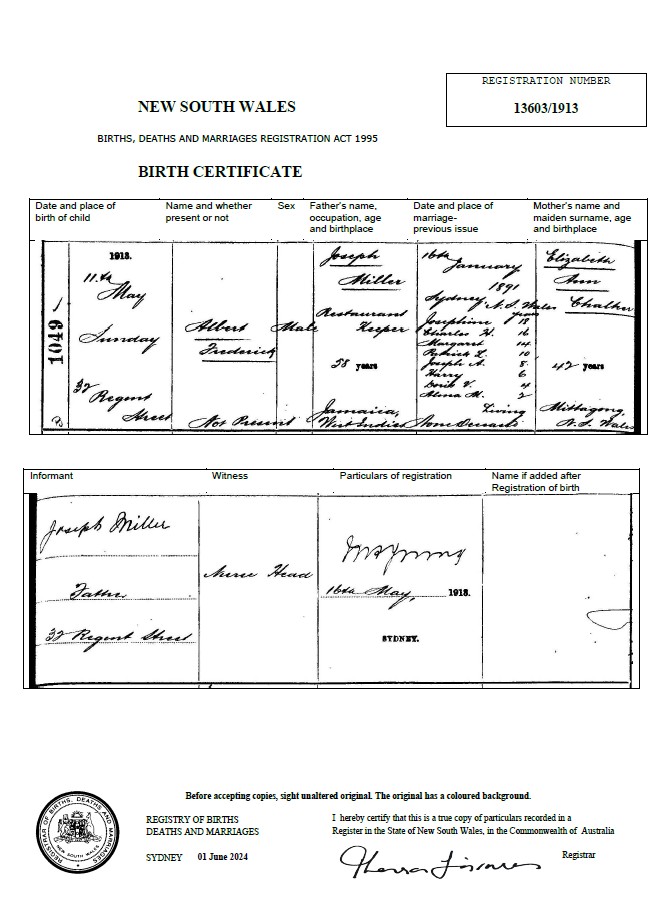 REGISTRATION NUMBER
13603/1913
NEW SOUTH WALES
BIRTHS, DEATHS AND MARRIAGES REGISTRATION ACT 1995
BIRTH CERTIFICATE
Date and place of
birth of child
Name and whether
present or not
Sex
Father's name,
occupation, age
and birthplace
Date and place of
marriage-
previous issue
Mother's name and
maiden surname, age
and birthplace
1049
1913.
11th
May
Sunday
32
Regent
Street
Albert
Frederick
Not Present
Male
Joseph
Miller
Restaurant
Keeper
58 years
Jamaica,
West Indies
16th
January
1891
Sydney N.S. Wales
years
Josephine 18
Charles H. 16
Margaret 14
Patrick L. 10
Joseph A. 8
Harry 6
Doris V. 4
Alma M. 2
Living
None Deceased
Elizabeth
Ann
Chalker
42 years
Mittagong,
N.S. Wales
Informant
Witness
Particulars of registration
Name if added after
Registration of birth
Joseph Miller
Father
32 Regent Street
Nurse Head
16th May, 1913.
SYDNEY.
Before accepting copies, sight unaltered original. The original has a coloured background.
REGISTRAR OF BIRTHS, DEATHS AND MARRIAGES
NEW SOUTH WALES
REGISTRY OF BIRTHS
DEATHS AND MARRIAGES
SYDNEY 01 June 2024
I hereby certify that this is a true copy of particulars recorded in a
Register in the State of New South Wales, in the Commonwealth of Australia
Registrar